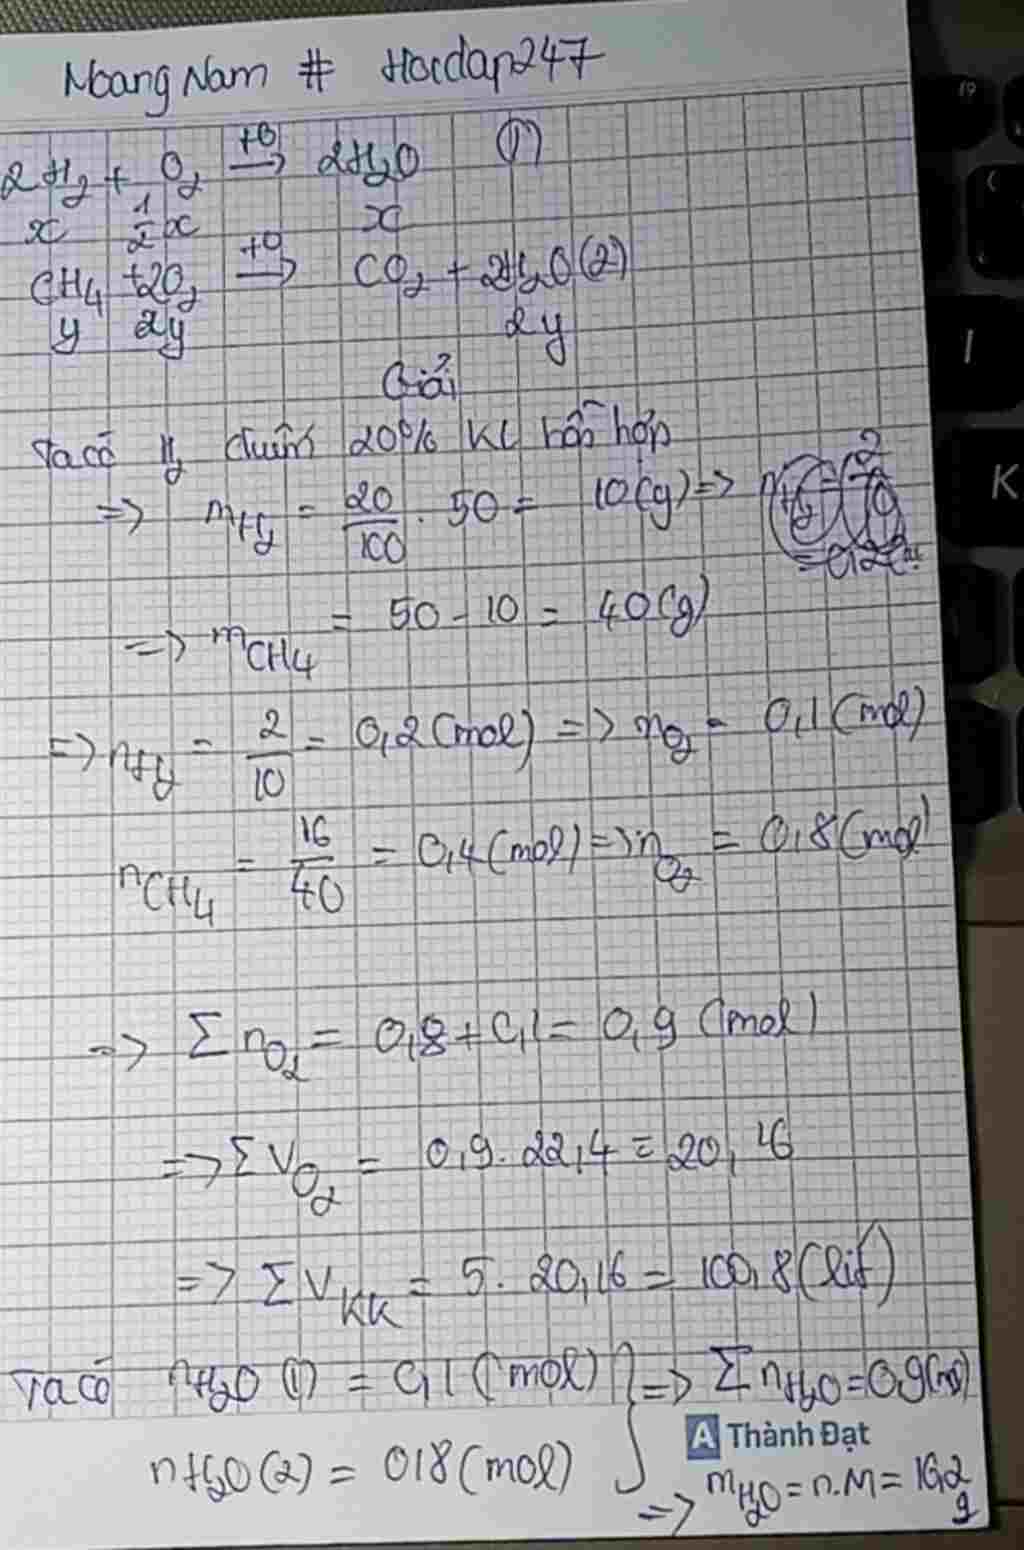 Hoang Nam # Hoidap247
2H₂ + O₂ →(+O) 2H₂O (1)
x 1/2x x
CH₄ +2O₂ →(+O) CO₂ + 2H₂O (2)
y 2y 2y
Giải
Ta có H₂ chiếm 20% KL hỗn hợp
=> mH₂ = 20/100 . 50 = 10(g) =>
=> mCH₄ = 50 - 10 = 40(g)
=> nH₂ = 2/10 = 0,2(mol) => nO₂ = 0,1(mol)
nCH₄ = 16/40 = 0,4(mol) => nO₂ = 0,8(mol)
=> Σ nO₂ = 0,8 + 0,1 = 0,9 (mol)
=> ΣVO₂ = 0,9. 22,4 = 20,16
=> ΣVKK = 5. 20,16 = 100,8(lit)
Ta có nH₂O (1) = 0,1 (mol) } => Σ nH₂O = 0,9(mol)
A Thành Đạt
nH₂O (2) = 0,8 (mol)
=> mH₂O = n.M = 16,2 g